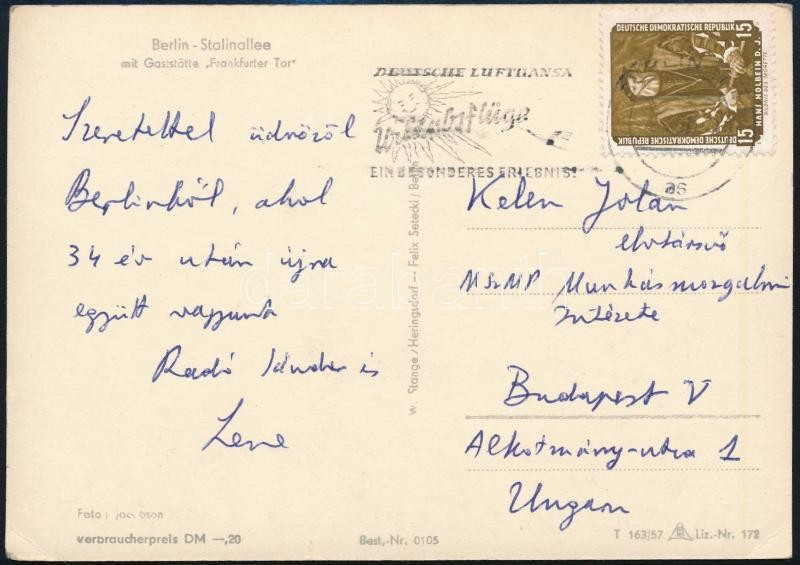 Berlin - Stalinallee
mit Gaststätte „Frankfurter Tor"
DEUTSCHE LUFTHANSA
Urlaubsflüge
EIN BESONDERES ERLEBNIS!
DEUTSCHE DEMOKRATISCHE REPUBLIK
15
HANS HOLBEIN D. J.
15
DEUTSCHE DEMOKRATISCHE REPUBLIK
BERLIN
as
Szeretettel üdvözöl
Berlinből, ahol
34 év után újra
együtt vagyunk
Radó Sándor és
Lene
W. Stange/Heringsdorf — Felix Setecki/Berlin
Kelen Jolán
elvtársnő
MSzMP Munkásmozgalmi
Intézete
Budapest V
Alkotmány-utca 1
Ungarn
Foto: Jacobson
verbraucherpreis DM —,20
Best.-Nr. 0105
T 163/57
Liz.-Nr. 172
darabanth